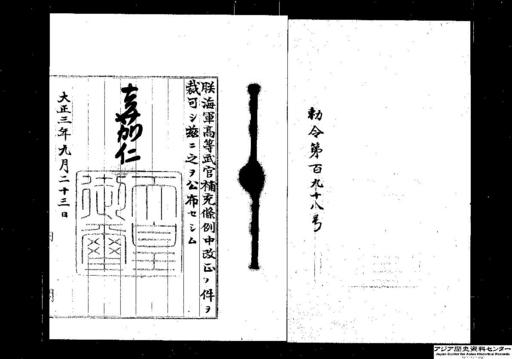 勅令第百九十八号
朕海軍高等武官補充條例中改正ノ件ヲ
裁可シ玆ニ之ヲ公布セシム
嘉仁
天皇御璽
大正三年九月二十三日
アジア歴史資料センター
Japan Center for Asian Historical Records